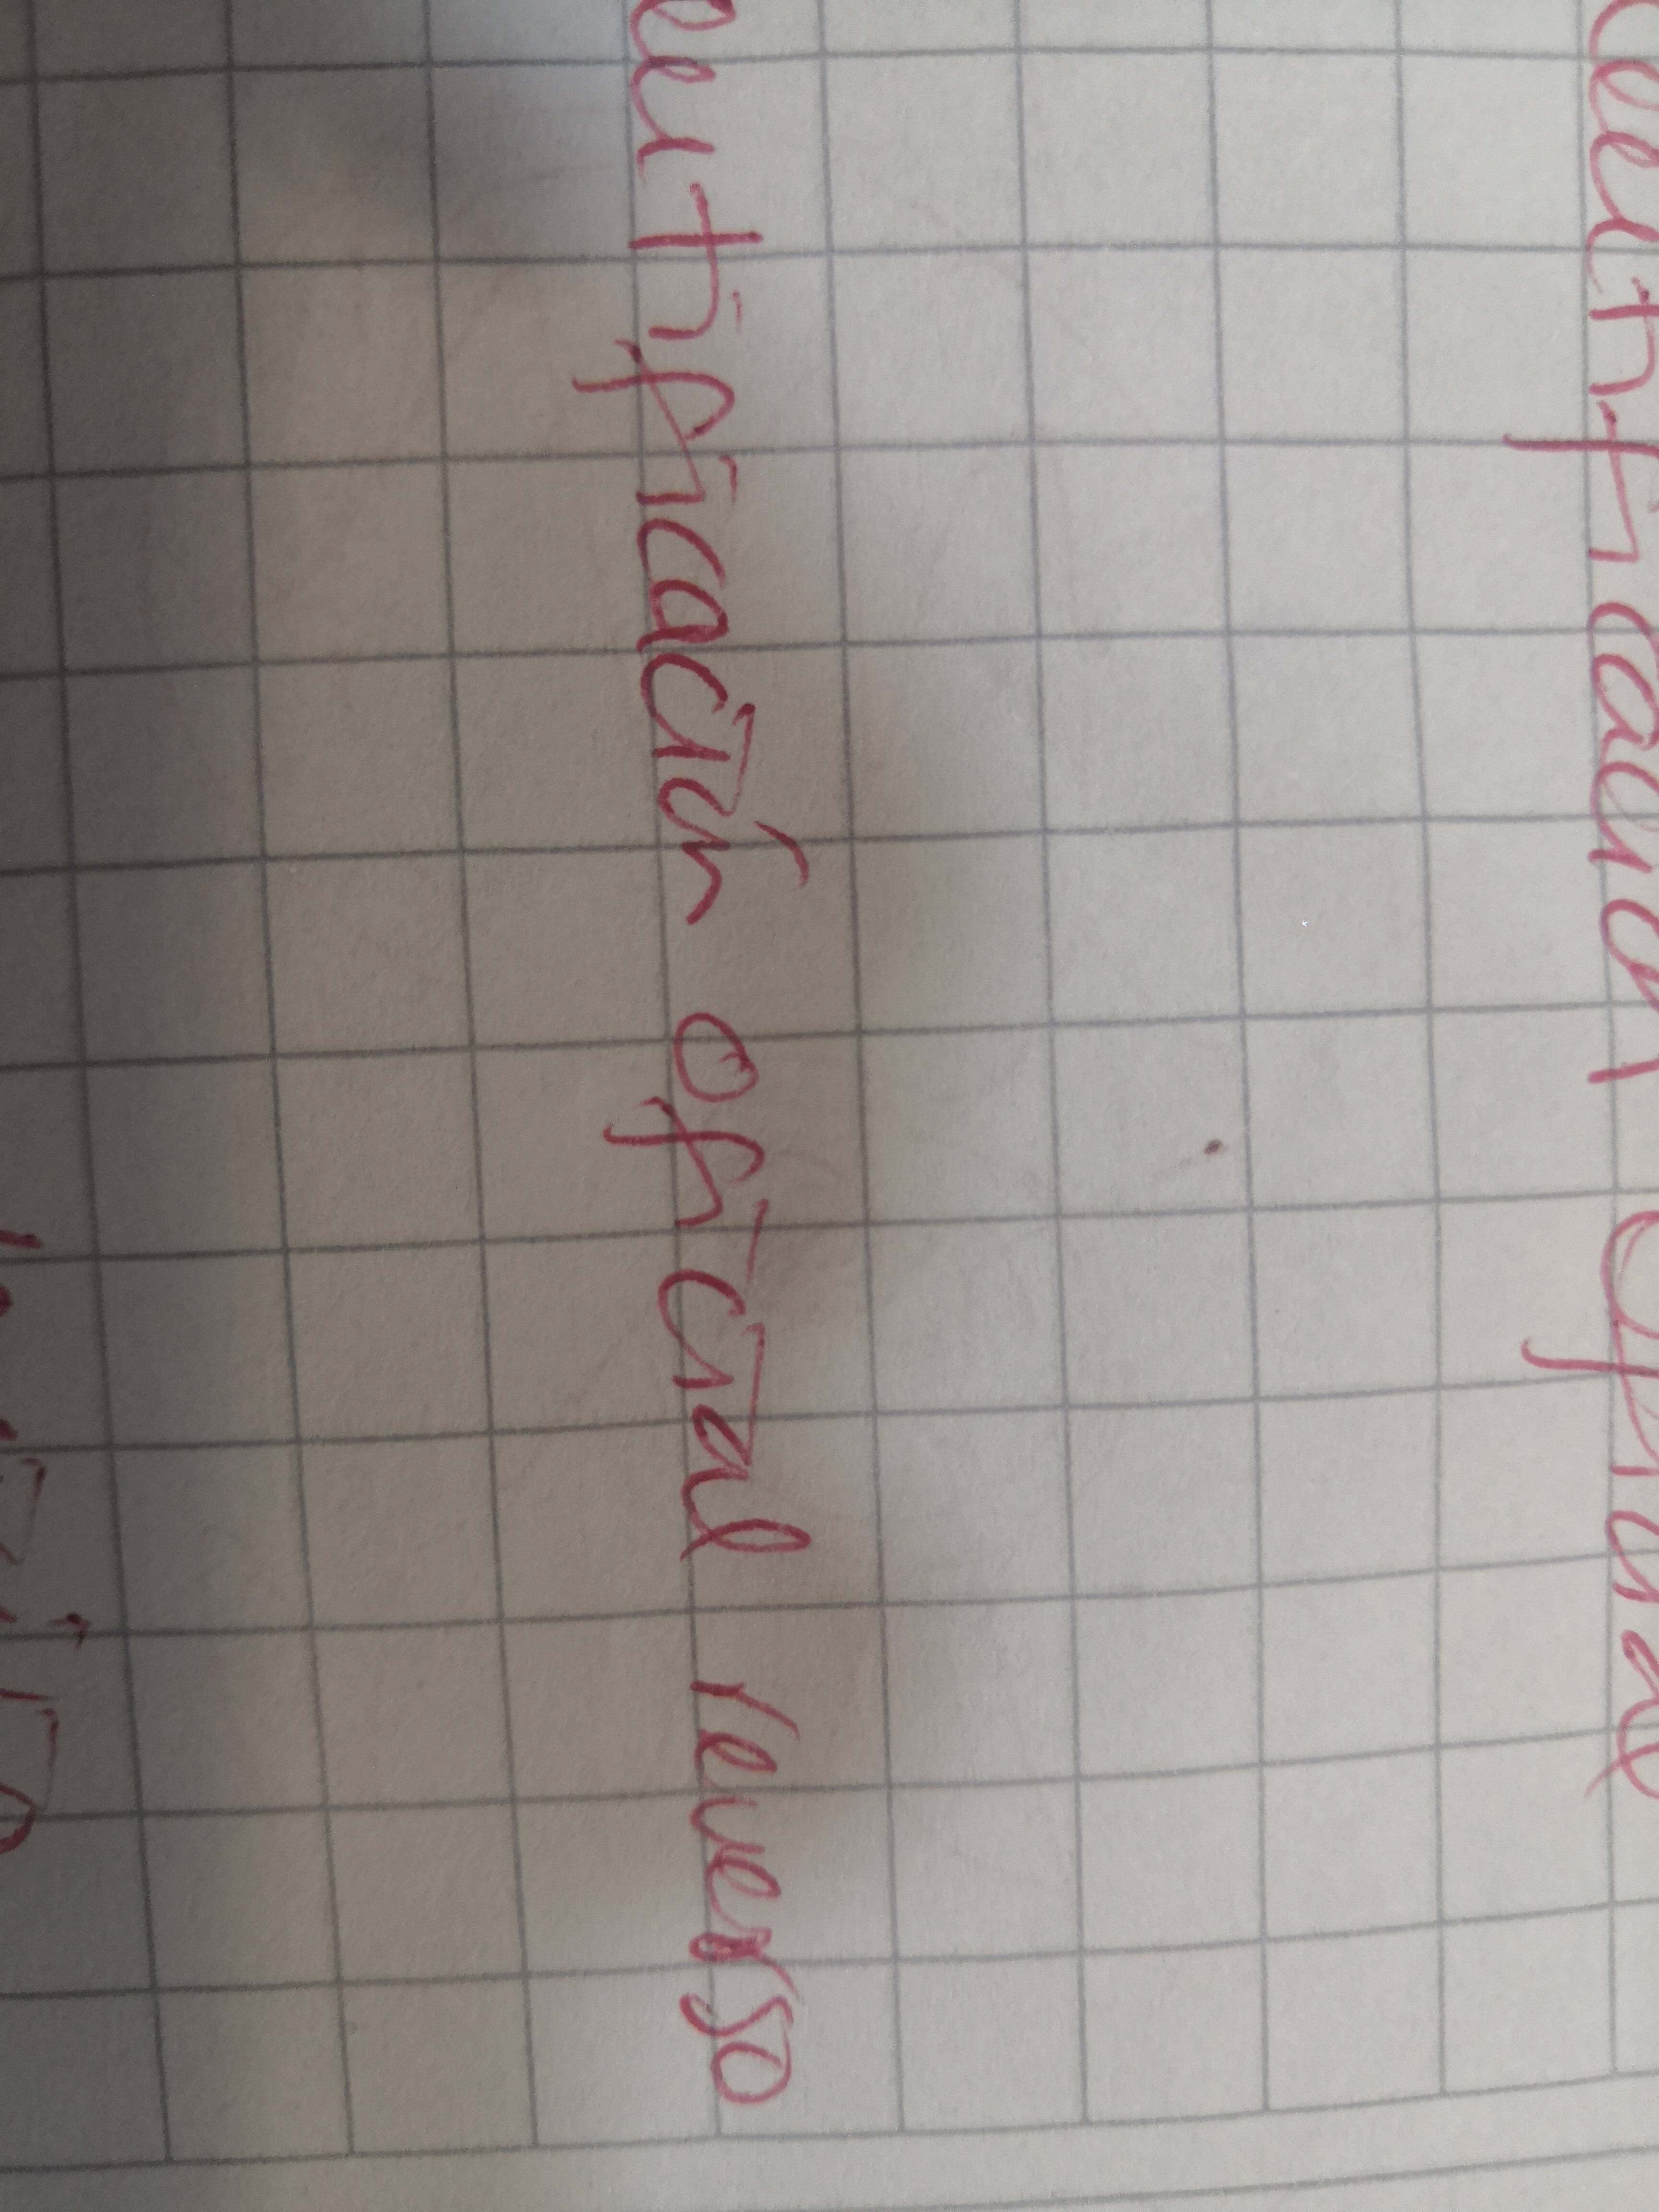 identificación Oficial
identificación oficial reverso